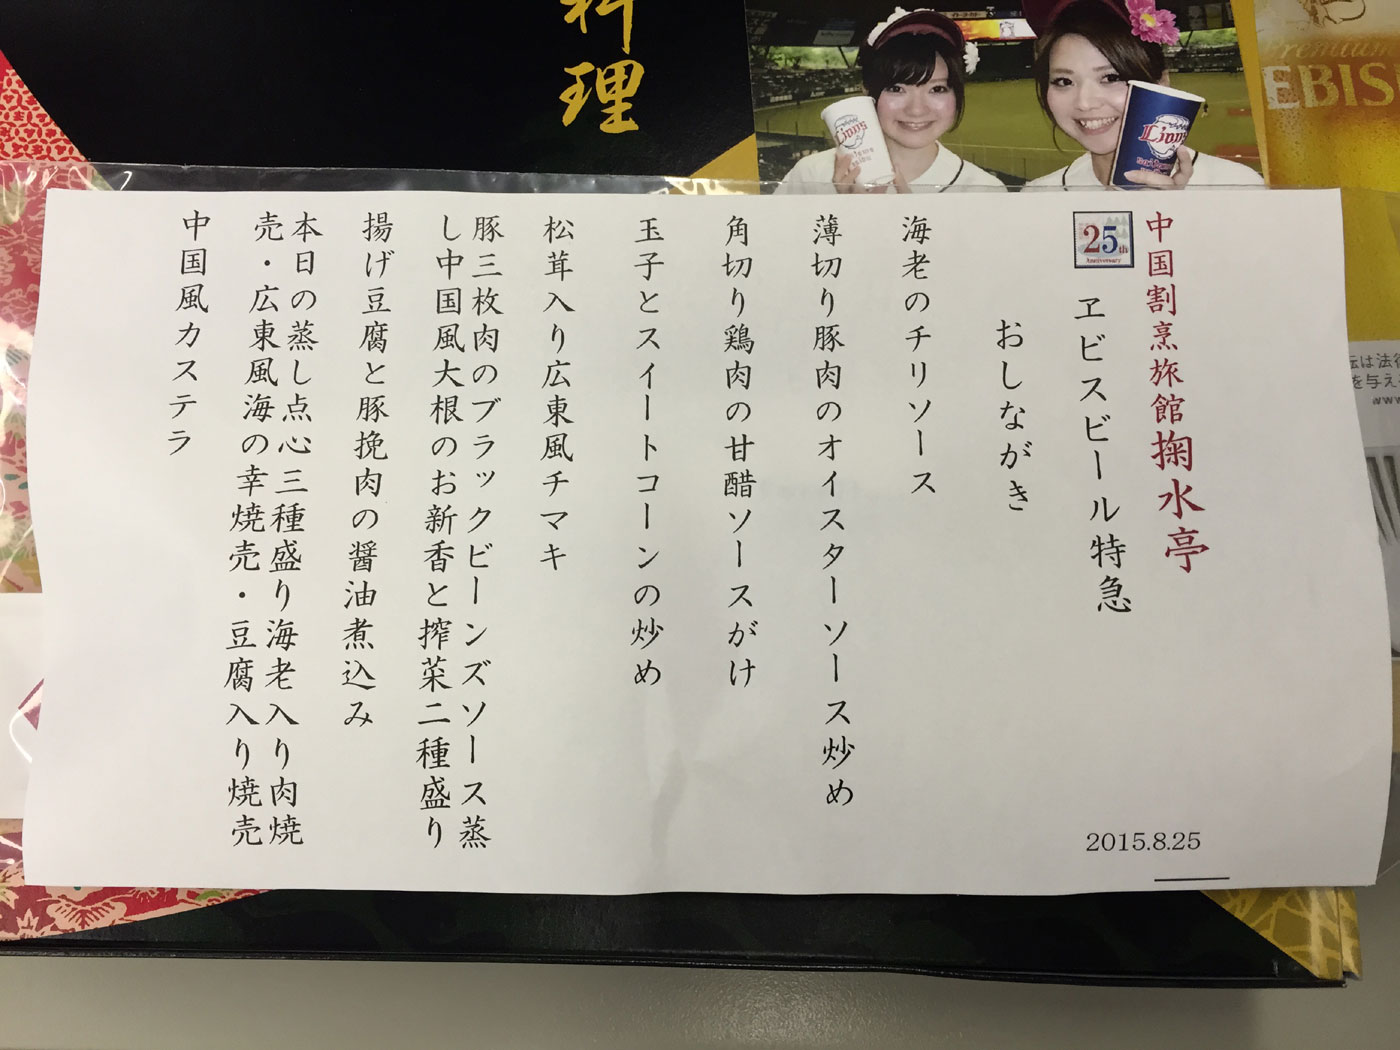 料理
Lions
Lions
Premium
EBIS
中国割烹旅館掬水亭
25th
Anniversary
ヱビスビール特急
おしながき
海老のチリソース
薄切り豚肉のオイスターソース炒め
角切り鶏肉の甘醋ソースがけ
玉子とスイートコーンの炒め
松茸入り広東風チマキ
豚三枚肉のブラックビーンズソース蒸
し中国風大根のお新香と搾菜二種盛り
揚げ豆腐と豚挽肉の醤油煮込み
本日の蒸し点心三種盛り海老入り肉焼
売・広東風海の幸焼売・豆腐入り焼売
中国風カステラ
2015.8.25
は法律
を与え
www